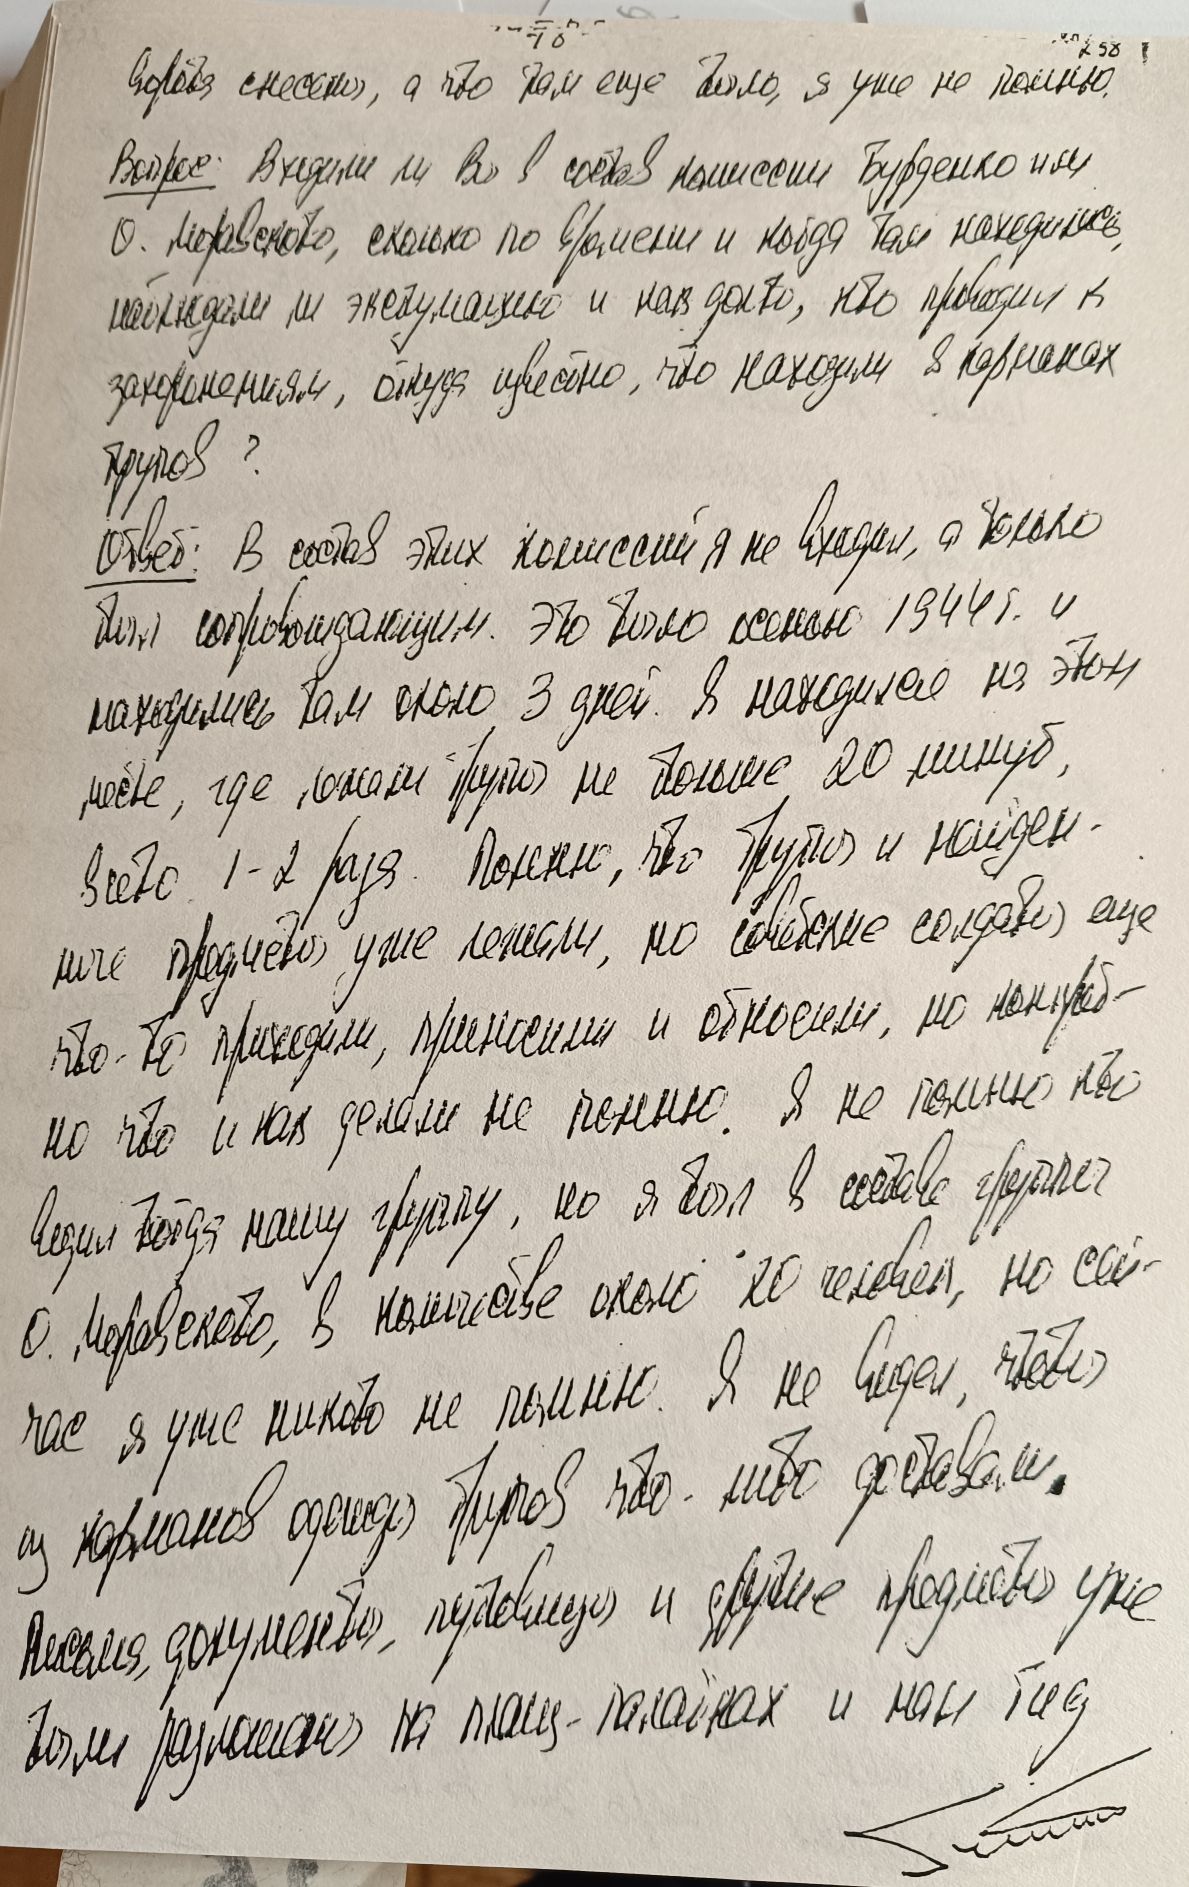 258
снесены, а что там еще было, я уже не помню.
Вопрос: Входили ли Вы в состав комиссии Бурденко или
О. Моравского, сколько по времени и когда там находились,
наблюдали ли эксгумацию и как долго, кто приходил к
захоронениям, откуда известно, что находили в карманах
трупов?
Ответ: В состав этих комиссий я не входил, а только
был сопровождающим. Это было осенью 1944 г. и
находились там около 3 дней. Я находился на этом
месте, где лежали трупы не больше 20 минут,
всего 1-2 раза. Помню, что трупы и найден-
ные предметы уже лежали, но советские солдаты еще
что-то приходили, приносили и относили, но конкрет-
но что и как делали не помню. Я не помню кто
видил тогда нашу группу, но я был в составе группы
О. Моравского, в количестве около 20 человек, но сей-
час я уже никого не помню. Я не видел, чтобы
из карманов одежды трупов что-либо доставали.
Письма, документы, пуговицы и другие предметы уже
были разложены на плащ-палатках и нам гид